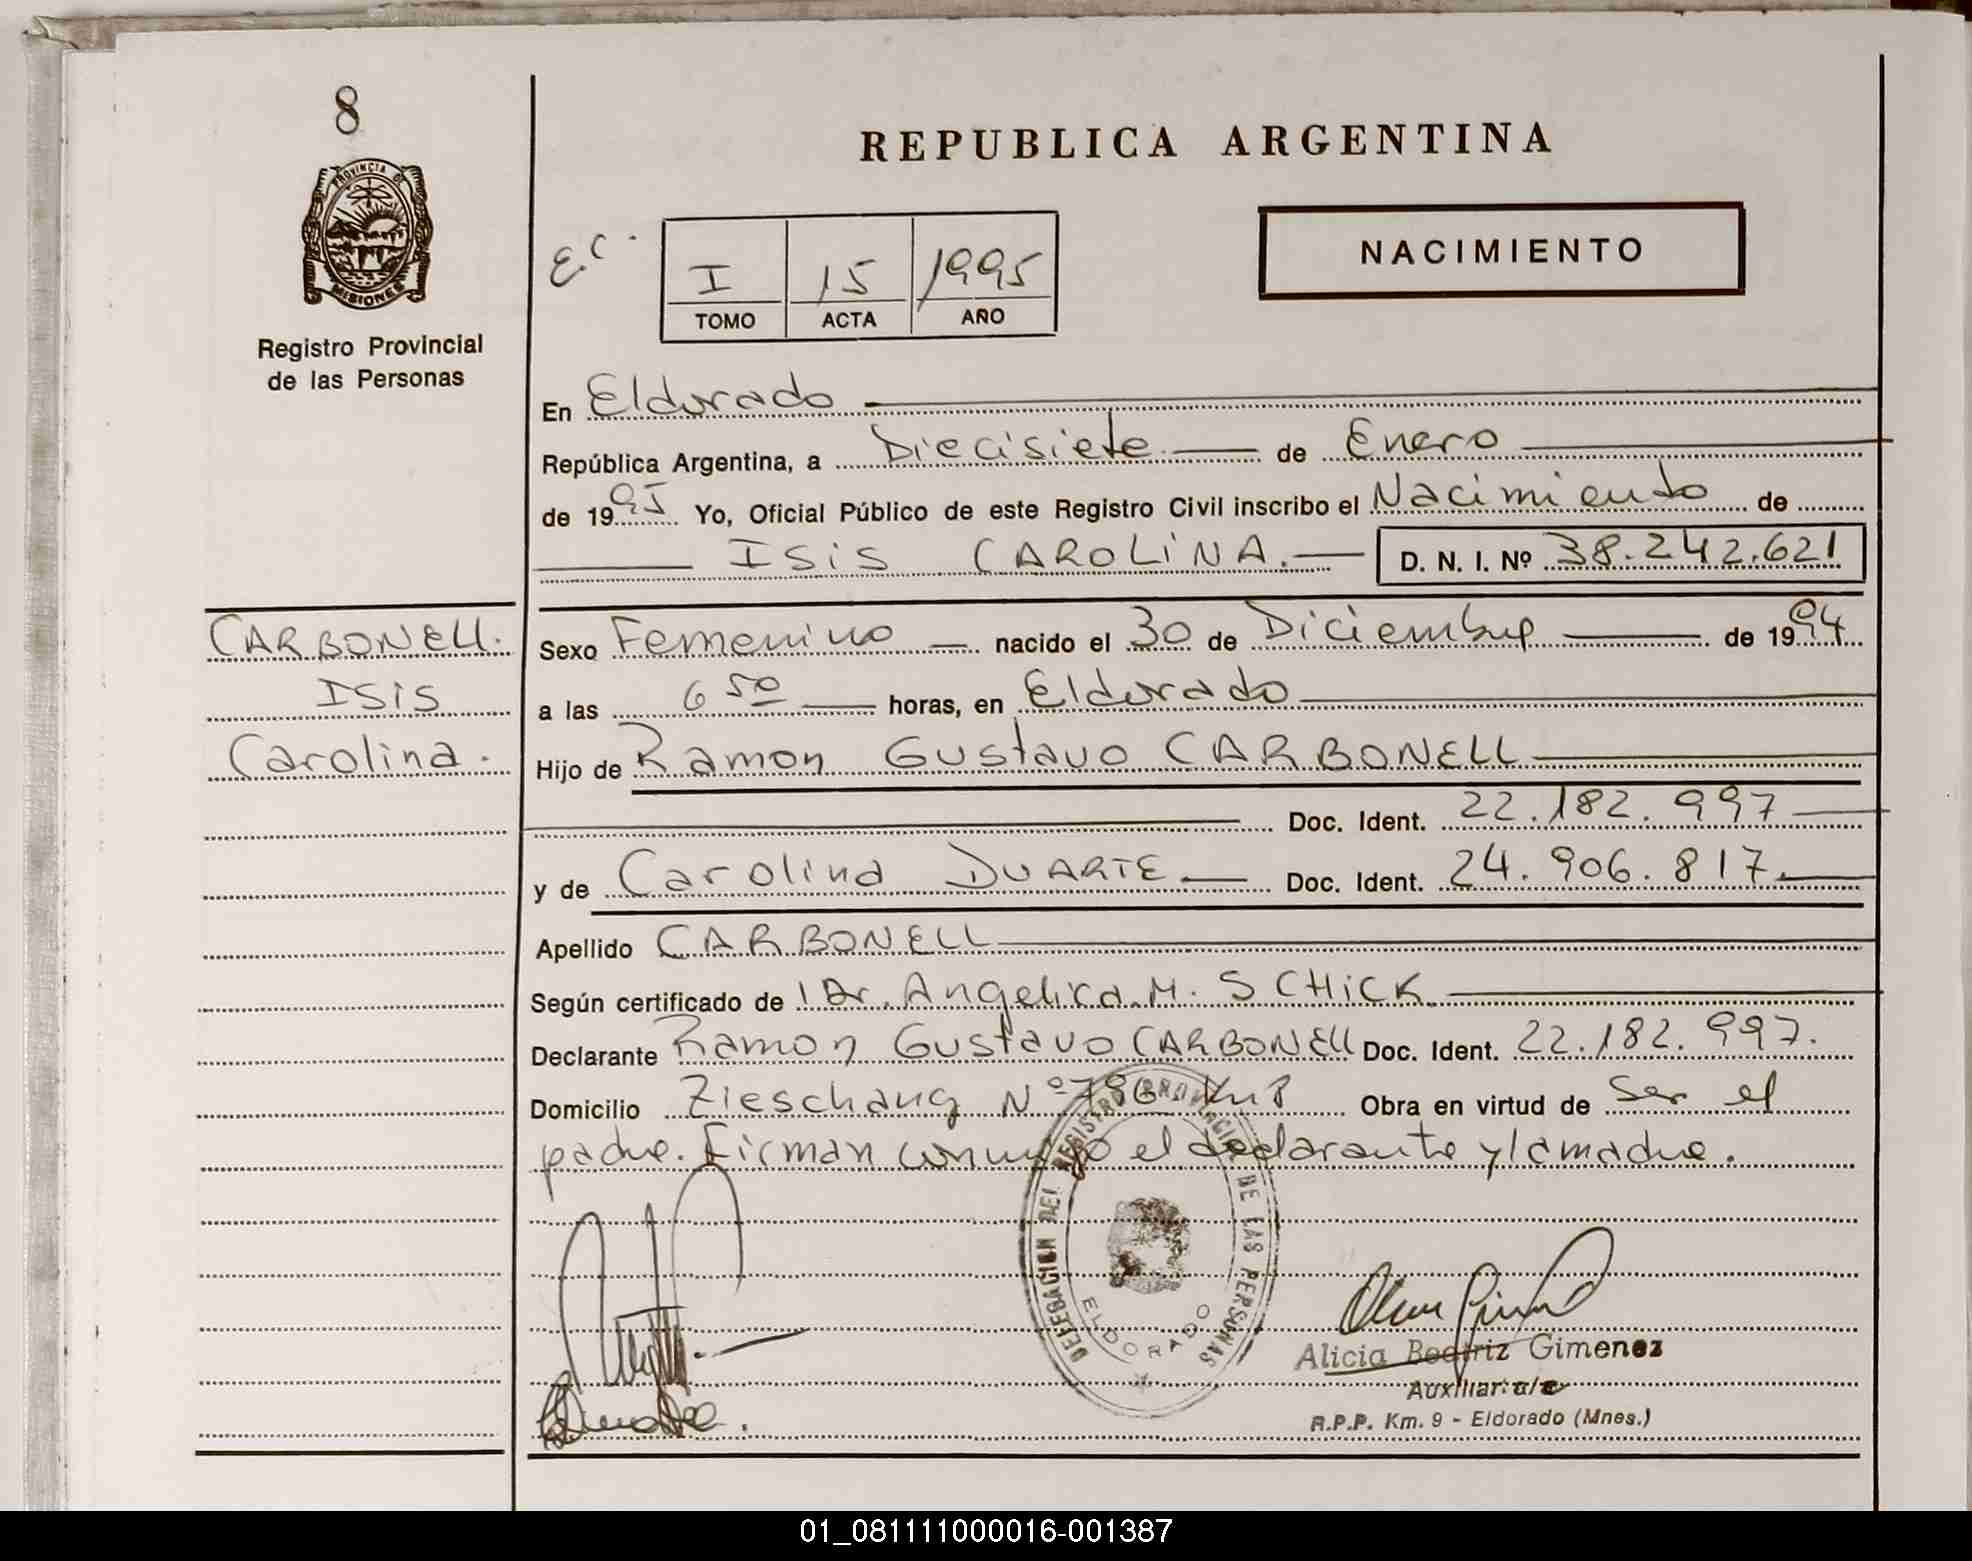 8
PROVINCIA DE
MISIONES
Registro Provincial
de las Personas
REPUBLICA ARGENTINA
E.C.
I 15 1995
TOMO ACTA AÑO
NACIMIENTO
En Eldorado
República Argentina, a Diecisiete de Enero
de 1995 Yo, Oficial Público de este Registro Civil inscribo el Nacimiento de
ISIS CAROLINA. D. N. I. Nº 38.242.621
CARBONELL.
ISIS
Carolina.
Sexo Femenino nacido el 30 de Diciembre de 1994
a las 6 50 horas, en Eldorado
Hijo de Ramon Gustavo CARBONELL
Doc. Ident. 22.182.997
y de Carolina DUARTE Doc. Ident. 24.906.817.
Apellido CARBONELL
Según certificado de Dr. Angelica M. SCHICK
Declarante Ramon Gustavo CARBONELL Doc. Ident. 22.182.997.
Domicilio Zieschang Nº 786 Km 8 Obra en virtud de Ser el
padre. Firman conmigo el declarante y la madre.
DELEGACION DEL REGISTRO PROVINCIAL DE LAS PERSONAS
ELDORADO
Alicia Beatriz Gimenez
Auxiliar a/c
R.P.P. Km. 9 - Eldorado (Mnes.)
01_081111000016-001387